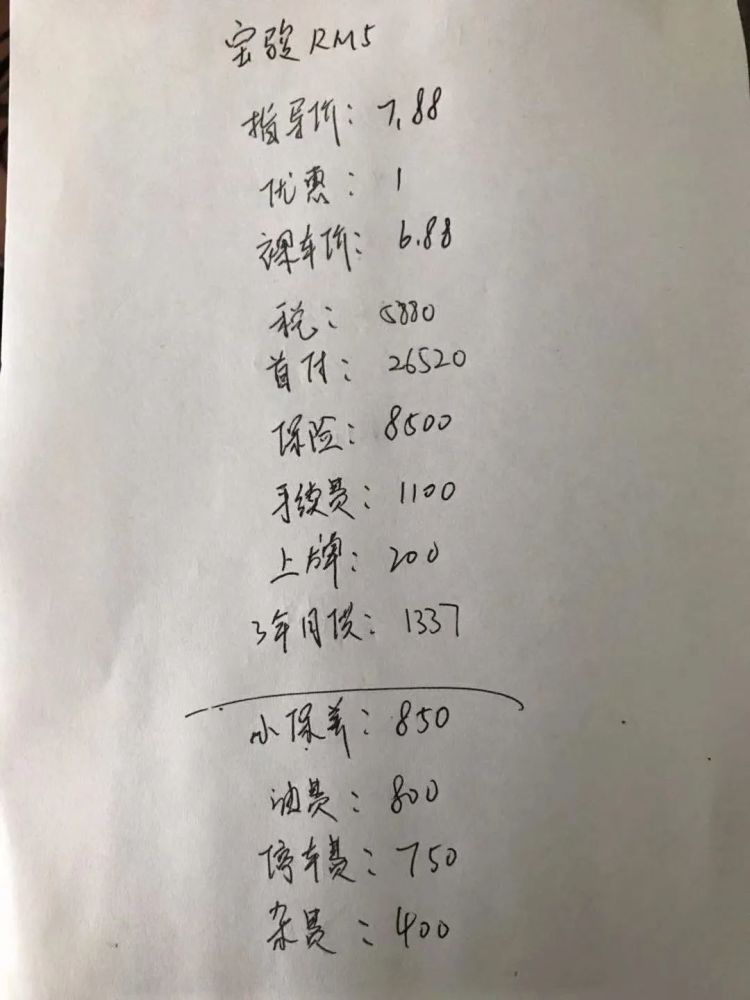 宝骏 RM5
指导价：7.88
优惠：1
裸车价：6.88
税：5880
首付：26520
保险：8500
手续费：1100
上牌：200
3年月供：1337
小保养：850
油费：800
停车费：750
杂费：400